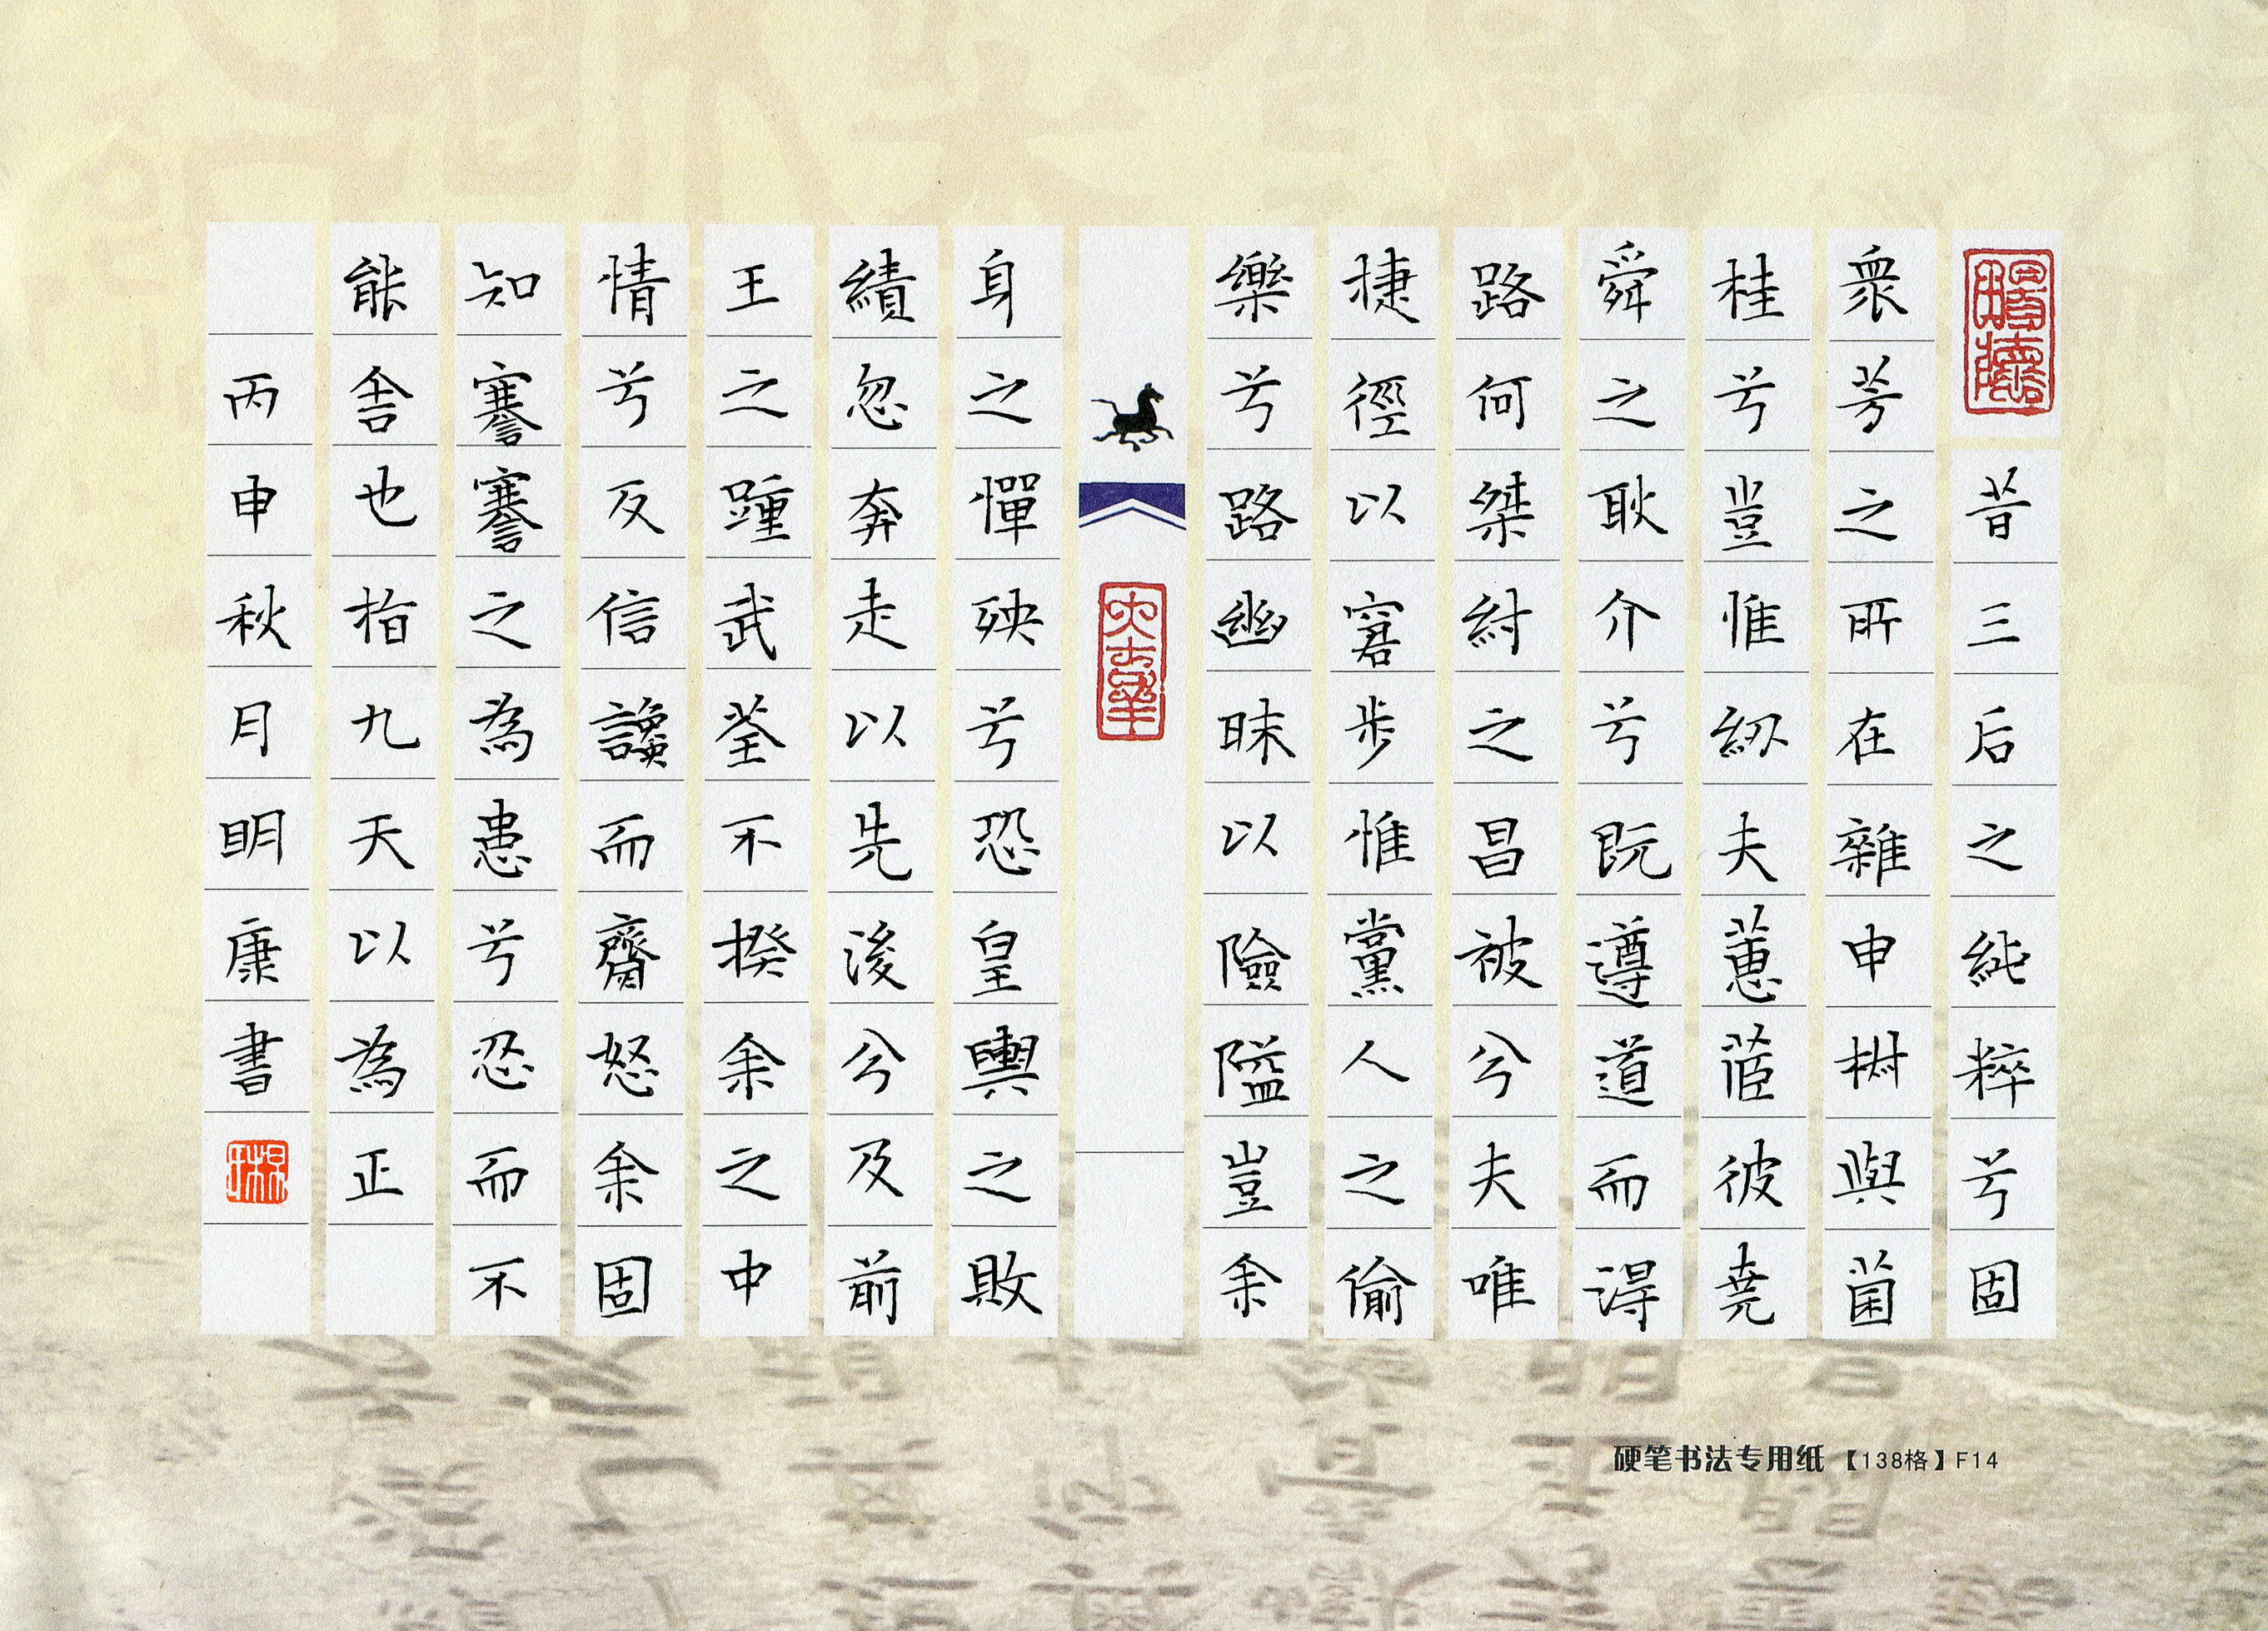 昔三后之純粹兮固
衆芳之所在雜申椒與菌
桂兮豈惟紉夫蕙茝彼堯
舜之耿介兮既遵道而得
路何桀紂之昌被兮夫唯
捷徑以窘步惟黨人之偷
樂兮路幽昧以險隘豈余
身之憚殃兮恐皇輿之敗
績忽奔走以先後兮及前
王之踵武荃不揆余之中
情兮反信讒而齌怒余固
知謇謇之為患兮忍而不
能舍也指九天以為正
丙申秋月明康書
硬笔书法专用纸【138格】F14